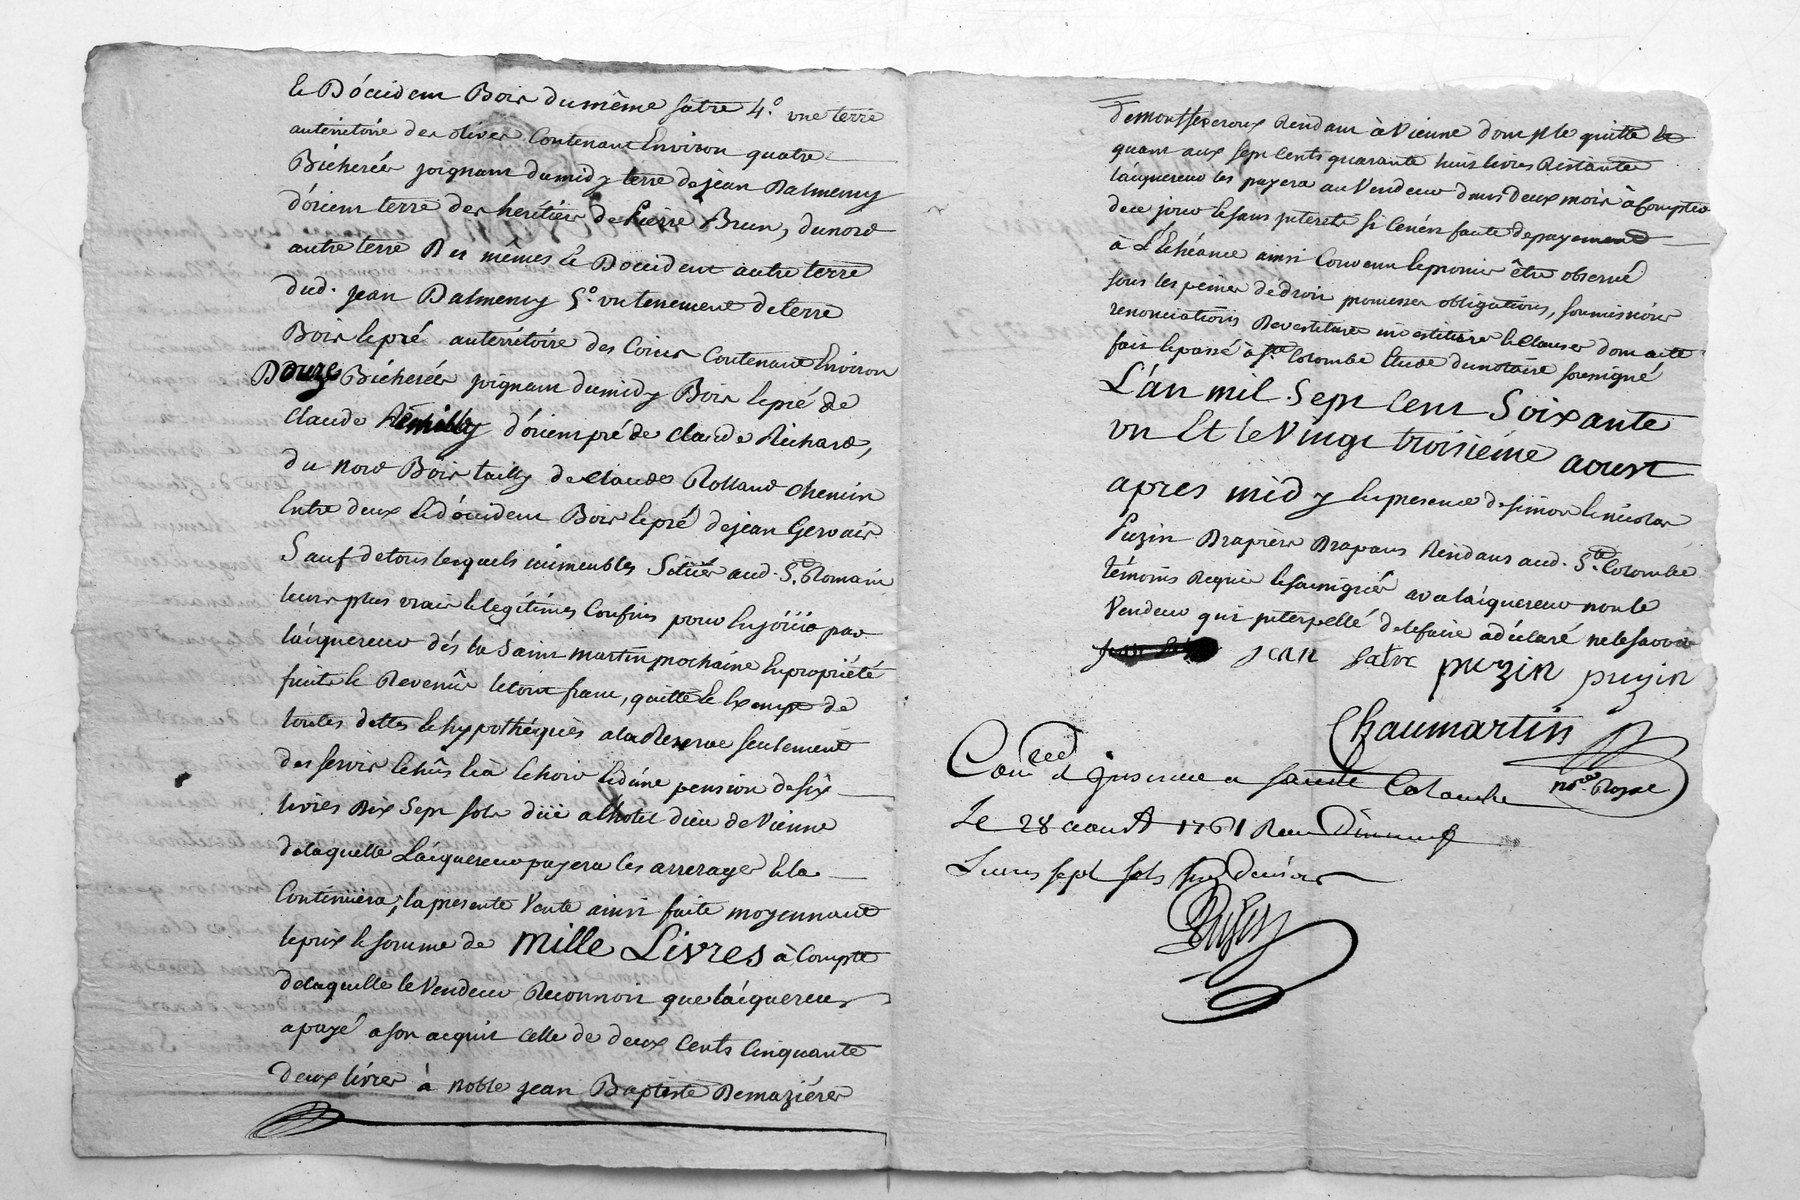 le D'óccident Bois du même satre 4.° une terre
au térritoire des olives Contenant Environ quatre
Bicherées joignant du midy terre de jean Dalmency
d'órient terre des heritiers de Pierre Brun, du nord
autre terre Des mêmes et D'occident autre terre
dud. jean Dalmency 5.° un tenement de terre
Bois le pré au térritoire des Coins Contenant Environ
Douze Bicherées joignant du midy Bois le pré de
Claude Remilly d'órient pré de claude Richard,
du nord Bois tailly de claude Rolland chemin
Entre deux le d'óccident Bois le pré de jean Gervais
Sauf de tous lesquels immeubles Situés aud. S.t Romain
leurs plus vrais le legitimes Confins pour En joüir par
l'áquereur dés la Saint martin prochaine En propriété
fruits le Revenûs le tout franc, quitte le Exempt de
toutes dettes le hypothéques a la Reserve seulement
des servis le d'une pension de six
livres Dix Sept sols düe a l'hotel dieu de Vienne
de laquelle L'áquereur payera les arrerages Et la
Continüera; la presente Vente ainsi faite moyennant
le prix le somme de mille Livres à Compte
de laquelle le Vendeur Reconnoit que l'áquereur
a payé a son acquit celle de deux Cents Cinquante
deux livres à noble jean Baptiste Demaziéres
de montseveroux Rendant à Vienne dont Il le quitte Et
quant aux sept Cents quarante huit livres Restante
l'áquereur les payera au Vendeur dans Deux mois à Compter
de ce jour le sans jnterets si Cenést faute de payement
à L'Echéance ainsi Convenu le promis être observé
sous les peines de droit promesses obligations, soumissions
renonciations Devestiture investiture le Clauses dont acte
fait le passé à S.te Colombe Etude du notaire soussigné
L'án mil Sept Cent Soixante
un Et le Vingt troisiéme aoust
apres midy En presence de simon le nicolas
Puzin Drapiers Drapans Residans aud. S.te Colombe
témoins Requis le soussignés avec l'áquereur non le
Vendeur qui jnterpellé de le faire a déclaré ne le savoir
jean satre puzin puzin
Chaumartin
no.re Royal
Con.lé et Insinué a sainte Colombe
Le 28 aoust 1761 Reçu Dixneuf
Livres sept sols six deniers